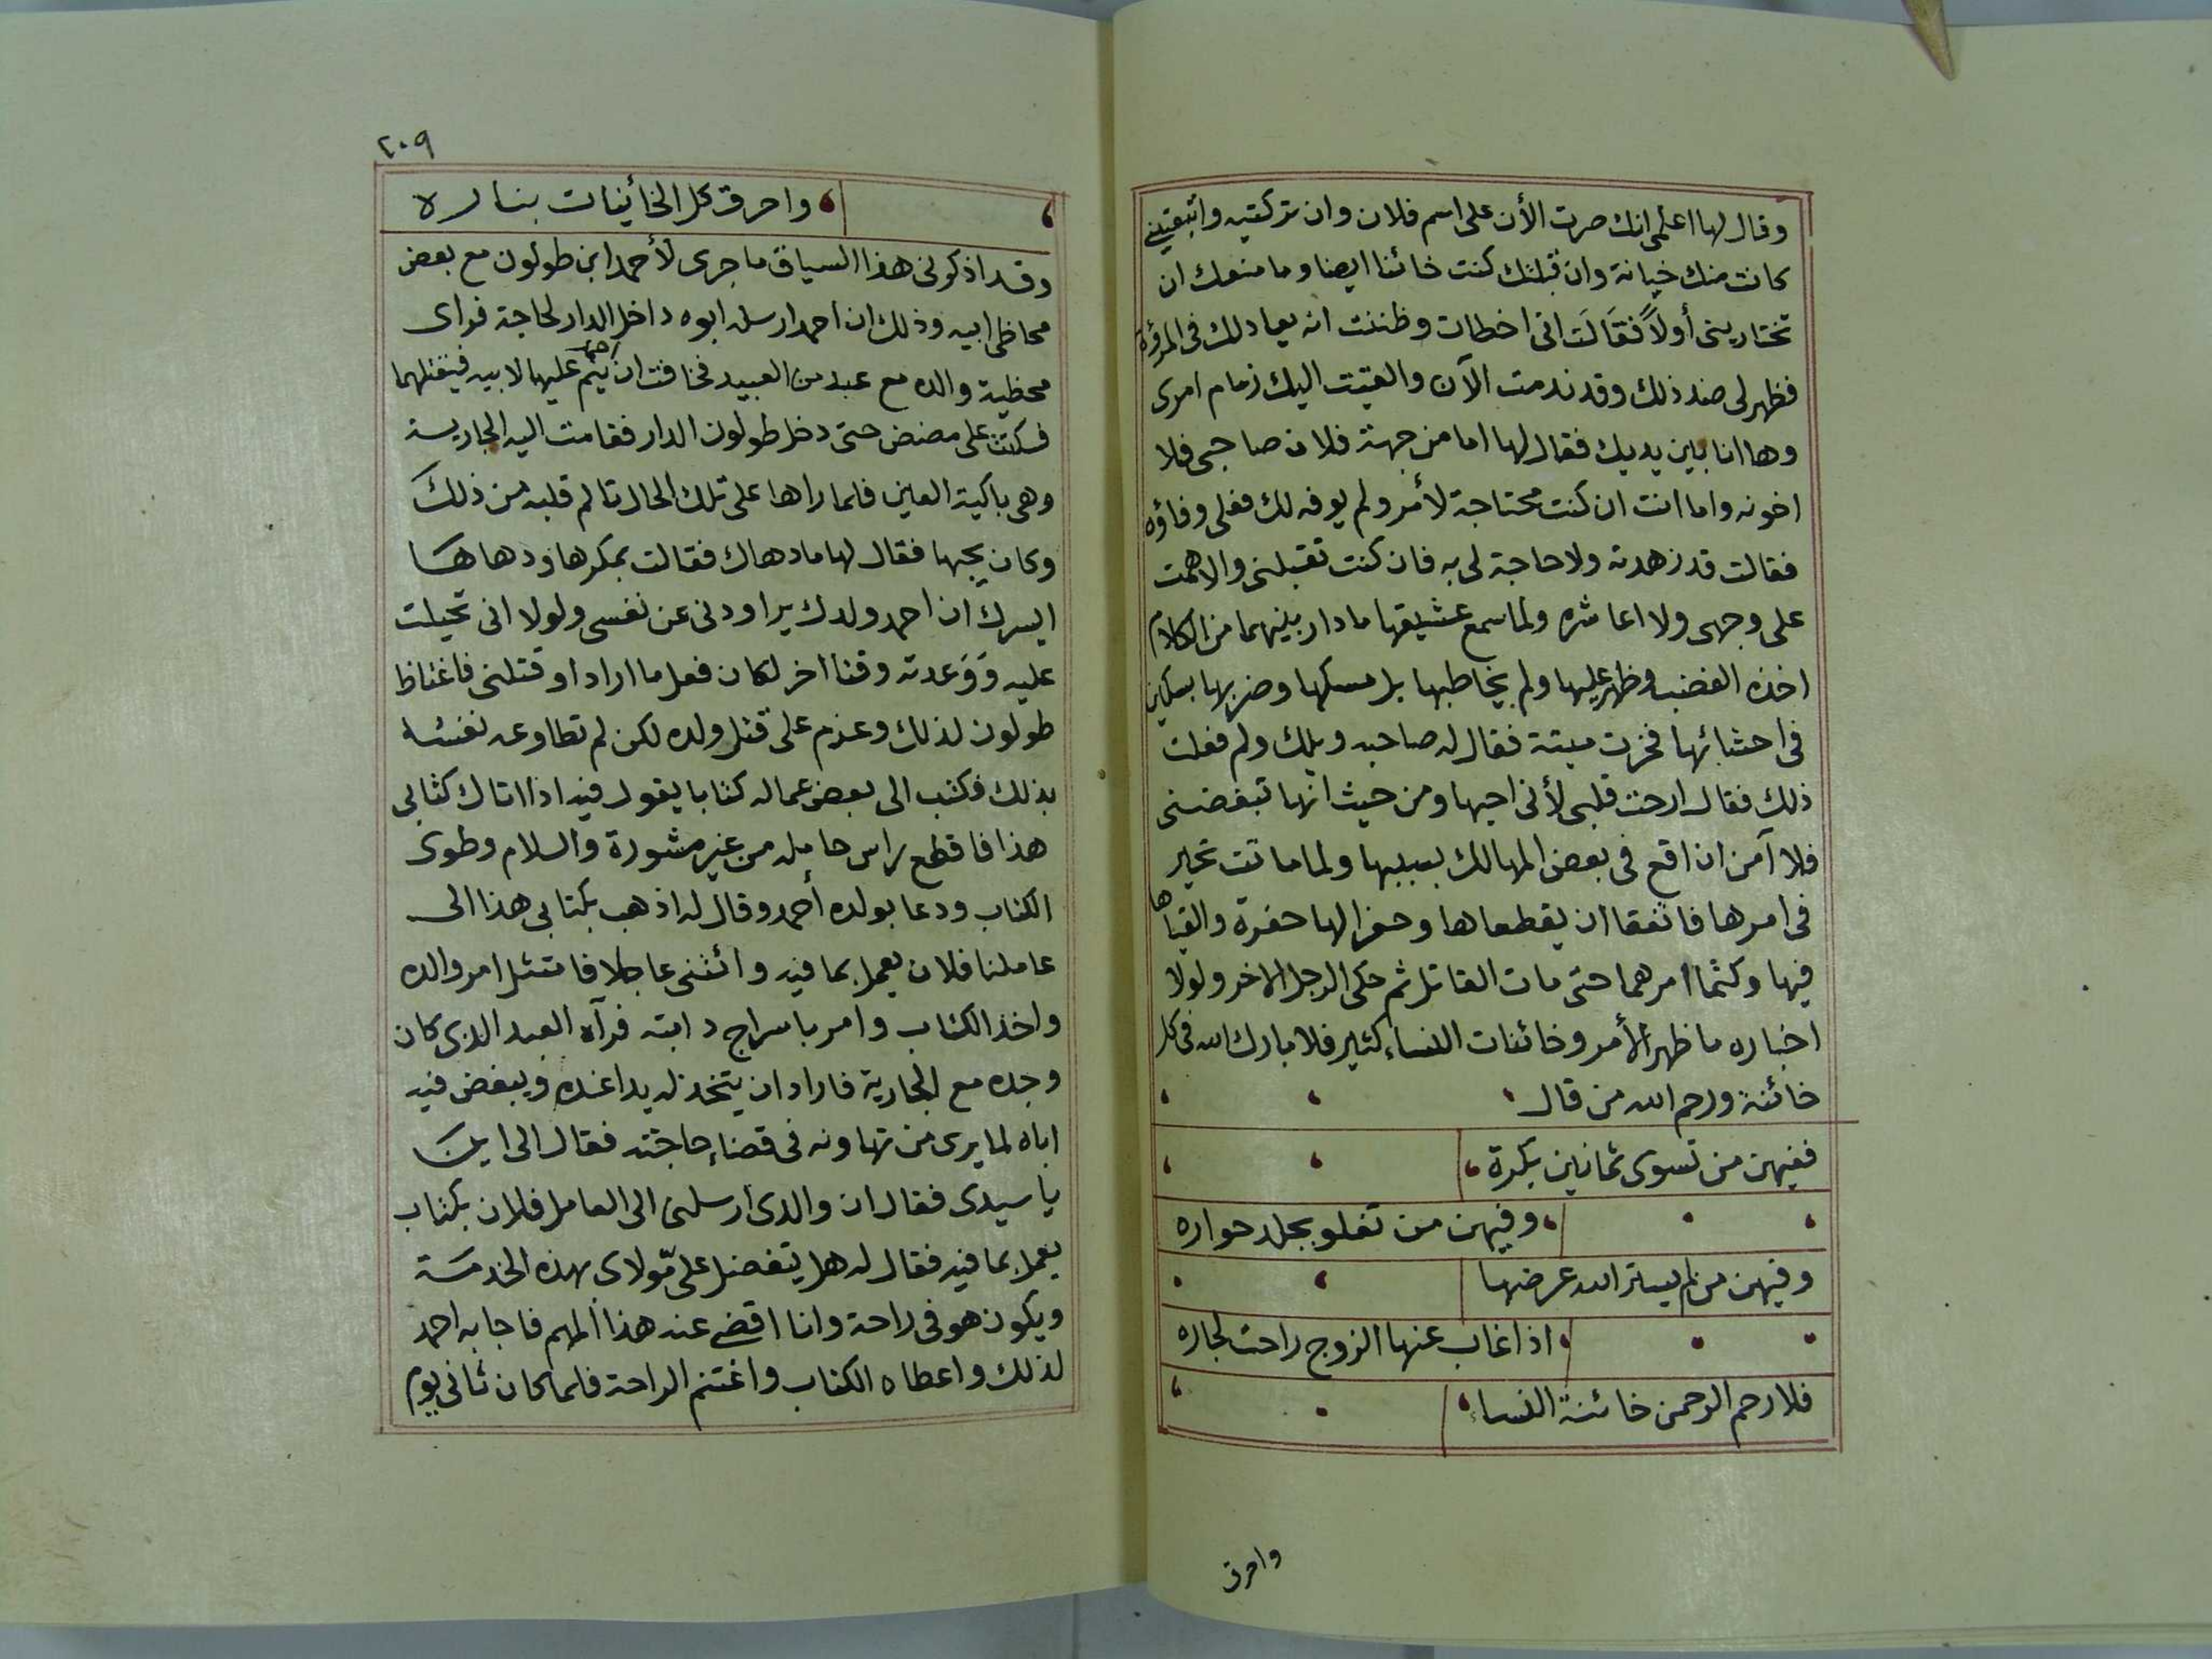 وقال لها اعلمى انك صرت الأن على اسم فلان وان تركتيه واتبعتينى
كانت منك خيانة وان قبلتك كنت خائنا ايضا وما منعك ان
تختارينى أولاً فقَالَت انى اخطات وظننت انه يعادلك فى المرؤة
فظهر لى ضد ذلك وقد ندمت الآن والقيت اليك زمام امرى
وها انا بين يديك فقال لها اما من جهة فلان صاحبى فلا
اخونه واما انت ان كنت محتاجة لأمر ولم يوفه لك فعلى وفاؤه
فقالت قد زهدته ولا حاجة لى به فان كنت تقبلنى والا همت
على وجهى ولا اعاشره ولما سمع عشيقها ما دار بينهما من الكلام
اخذه الغضب وظهر عليها ولم يخاطبها بل مسكها وضربها بسكين
فى احشائها فخرت ميتة فقال له صاحبه ويلك ولم فعلت
ذلك فقال ارحت قلبى لأنى احبها ومن حيث انها تبغضنى
فلا آمن ان اقع فى بعض المهالك بسببها ولما ماتت تحير
فى امرها فاتفقا ان يقطعاها وحفرا لها حفرة والقياها
فيها وكتما امرهما حتى مات القاتل ثم حكى الرجل الاخر ولولا
اخباره ما ظهر الأمر وخائنات النساء كثير فلا بارك الله فى كل
خائنة ورحم الله من قال
ففيهن من تسوى ثمانين بكرة
وفيهن من تغلو بجلد حواره
وفيهن من لم يستر الله عرضها
اذا غاب عنها الزوج راحت لجاره
فلا رحم الرحمن خائنة النساء
واحرق
٢٠٩
واحرق كل الخائينات بناره
وقد اذكرنى هذا السياق ما جرى لأحمد ابن طولون مع بعض
محاظى ابيه وذلك ان احمد ارسله ابوه داخل الدار لحاجة فراى
محظية والده مع عبد من العبيد فخافت ان ينم عليها لابيه فيقتلهما
فسكتت على مضض حتى دخل طولون الدار فقامت اليه الجارية
وهى باكية العين فلما راها على تلك الحال تالم قلبه من ذلك
وكان يحبها فقال لها ما دهاك فقالت بمكرها ودهاها
ايسرك ان احمد ولدك يراودنى عن نفسى ولولا انى تحيلت
عليه وَوَعدته وقتا اخر لكان فعل ما اراد او قتلنى فاغتاظ
طولون لذلك وعزم على قتل ولده لكن لم تطاوعه نفسه
بذلك فكتب الى بعض عماله كتابا يقول فيه اذا اتاك كتابى
هذا فاقطع راس حامله من غير مشورة والسلام وطوى
الكتاب ودعا بولده أحمد وقال له اذهب بكتابى هذا الى
عاملنا فلان يعمل بما فيه وائتنى عاجلا فامتثل امر والده
واخذ الكتاب وامر باسراج دابته فرآه العبد الذى كان
وجده مع الجارية فاراد ان يتخذ له يدا عنده ويبغض فيه
اباه لما يرى من تهاونه فى قضاء حاجته فقال الى اين
يا سيدى فقال ان والدى ارسلنى الى العامل فلان بكتاب
يعمل بما فيه فقال له هل يتفضل علىّ مولاى بهذه الخدمة
ويكون هو فى راحة وانا اقضى عنه هذا المهم فاجابه احمد
لذلك واعطاه الكتاب واغتنم الراحة فلما كان ثانى يوم